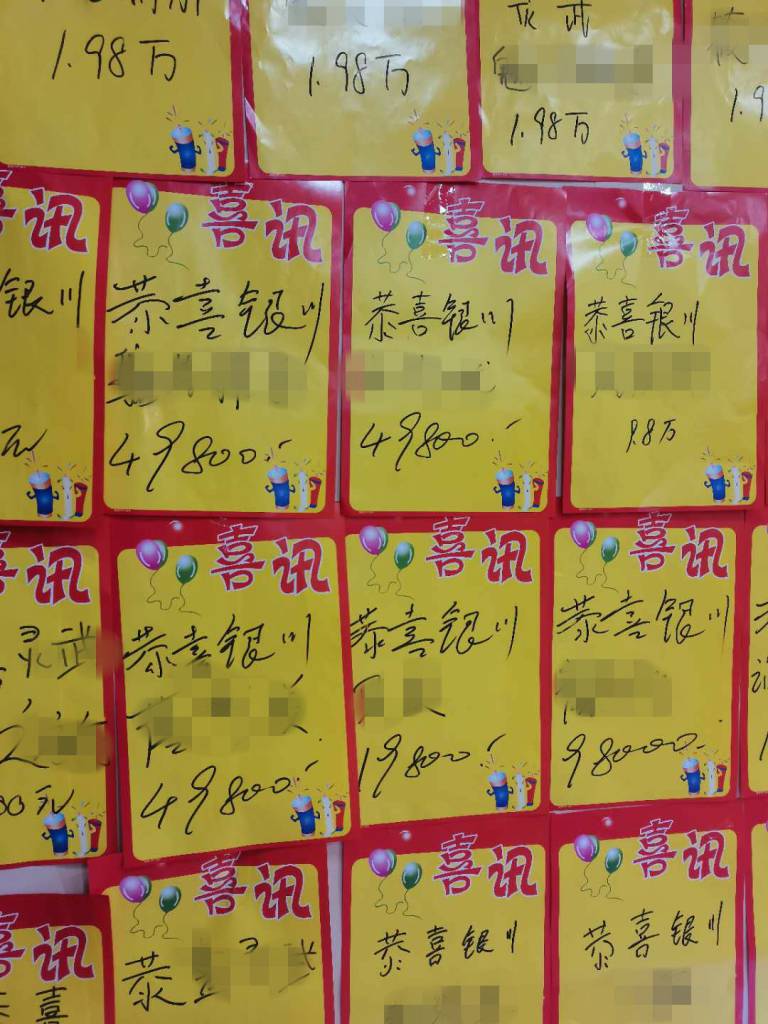 1.98万
1.98万
灵武
1.98万
1.9
喜讯
银川
元
喜讯
恭喜银川
49800.-
喜讯
恭喜银川
49800.-
喜讯
恭喜银川
9.8万
喜讯
灵武
00元
喜讯
恭喜银川
49800.-
喜讯
恭喜银川
19800.-
喜讯
恭喜银川
98000.-
喜讯
喜
喜讯
恭
喜讯
恭喜银川
喜讯
恭喜银川